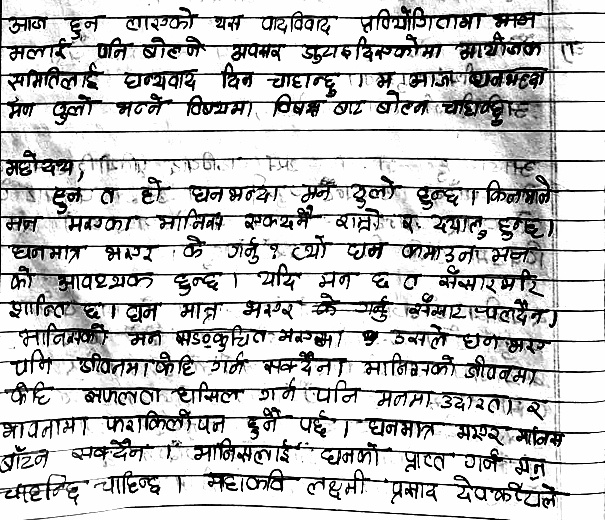 आज हुन लागेको यस वादविवाद प्रतियोगितामा
मलाई पनि बोल्ने अवसर जुटाइदिएकोमा आयोजक
समितिलाई धन्यवाद दिन चाहान्छु । म आज धनभन्दा
मन ठुलो भन्ने विषयमा विपक्ष बाट बोल्न
महोदय,
हुन त हो धनभन्दा मन ठुलो हुन्छ । किनभने
मन भएका मानिस एकदमै राम्रो र दयालु हुन्छ।
धनमात्र भएर के गर्नु ? त्यो धन कमाउन मन
को आवश्यक हुन्छ । यदि मन छ त संसारभरि
शान्ति छ। धन मात्र भएर के गर्नु संसार चल्दैन।
मानिसको मन सङ्कुचित भएमा उसले धन भएर
पनि जीवनमा केहि गर्न सक्दैन। मानिसको जीवनमा
केहि सफलता हासिल गर्न पनि मनमा उदारता र
भावनामा फराकिलोपन हुनै पर्छ । धनमात्र भएर मानिस
बाँच्न सक्दैन । मानिसलाई धनको प्राप्त गर्न मन
चाहिन्छ । महाकवि लक्ष्मी प्रसाद देवकोटाले